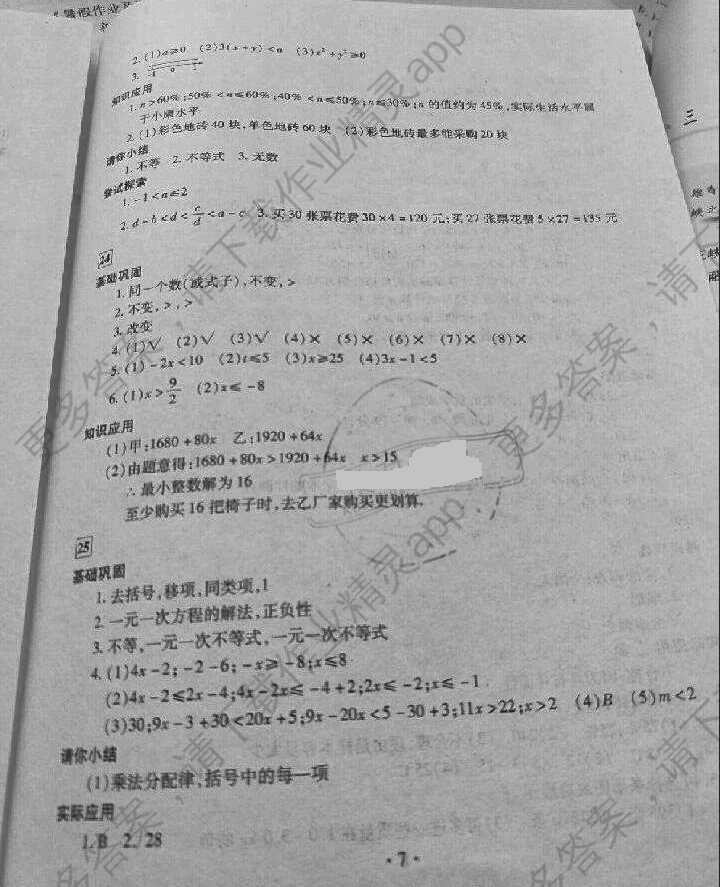 暑假作业
2. (1)a≥0 (2)3(x+y)<a (3)x²+y²≥0
3.
知识应用
1. n>60%;50%<n≤60%;40%<n≤50%;n≤30%;n 的值约为45%,实际生活水平属
于小康水平
2. (1)彩色地砖 40 块,单色地砖 60 块 (2)彩色地砖最多能采购 20 块
请你小结
1. 不等 2. 不等式 3. 无数
尝试探索
1. -1<a≤2
2. d-b<d<c/d<a-c 3. 买 30 张票花费 30×4=120 元;买 27 张票花费 5×27=135 元
24
基础巩固
1. 同一个数(或式子),不变,>
2. 不变,>,>
3. 改变
4. (1)√ (2)√ (3)√ (4)× (5)× (6)× (7)× (8)×
5. (1)-2x<10 (2)t≤5 (3)x≥25 (4)3x-1<5
6. (1)x>9/2 (2)x≤-8
知识应用
(1)甲:1680+80x 乙:1920+64x
(2)由题意得:1680+80x>1920+64x x>15
∴最小整数解为 16
至少购买 16 把椅子时,去乙厂家购买更划算.
25
基础巩固
1. 去括号,移项,同类项,1
2. 一元一次方程的解法,正负性
3. 不等,一元一次不等式,一元一次不等式
4. (1)4x-2;-2-6;-x≥-8;x≤8
(2)4x-2≤2x-4;4x-2x≤-4+2;2x≤-2;x≤-1
(3)30;9x-3+30<20x+5;9x-20x<5-30+3;11x>22;x>2 (4)B (5)m<2
请你小结
(1)乘法分配律,括号中的每一项
实际应用
1. B 2. 28
·7·
三
更多答案,请下载作业精灵app
更多答案,请下载作业精灵app
更多答案,请下载作业精灵app
更多答案,请